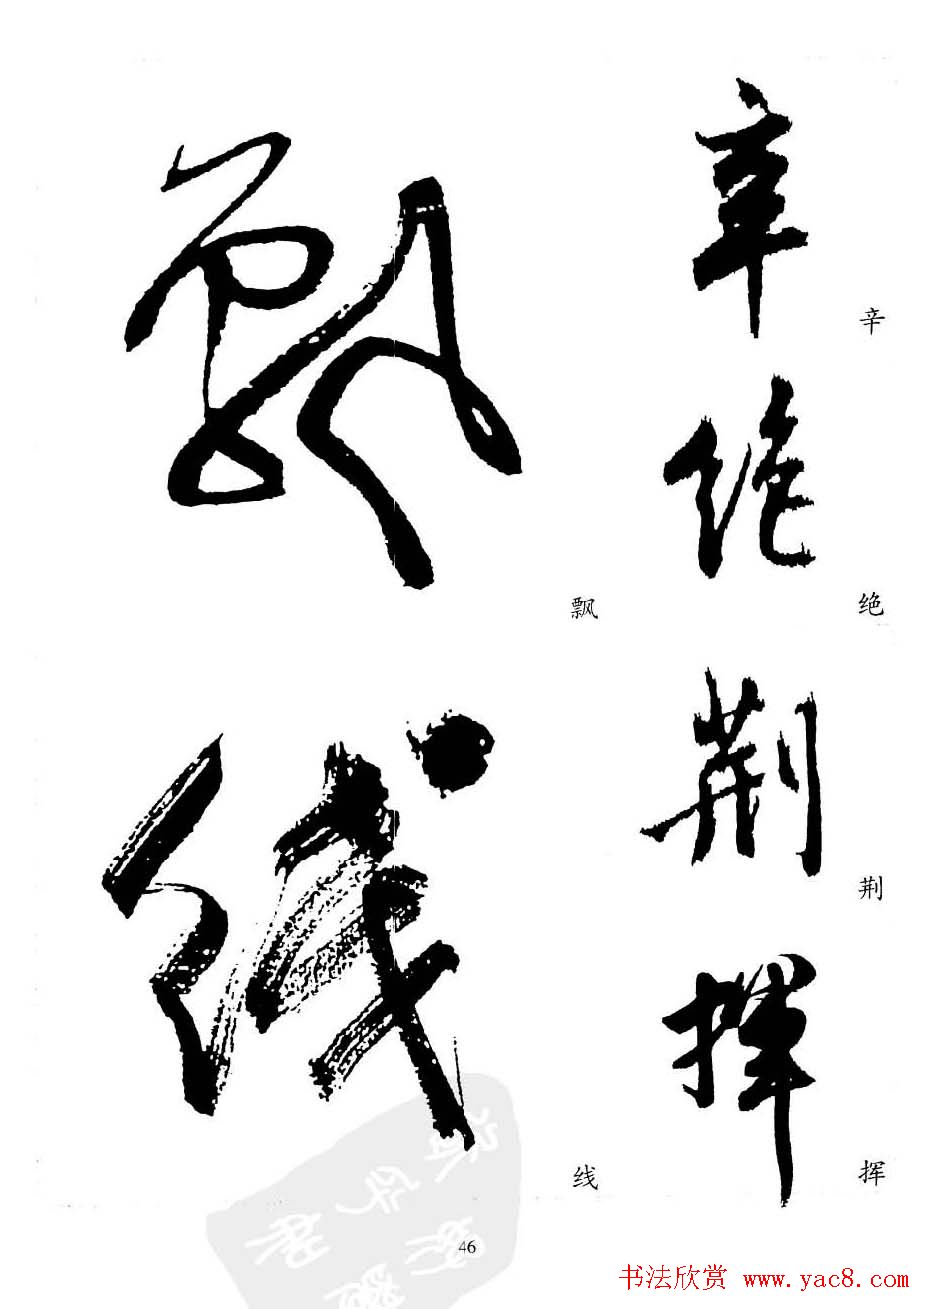 辛
辛
绝
绝
荆
荆
挥
挥
飘
飘
线
线
46
书法欣赏 www.yac8.com